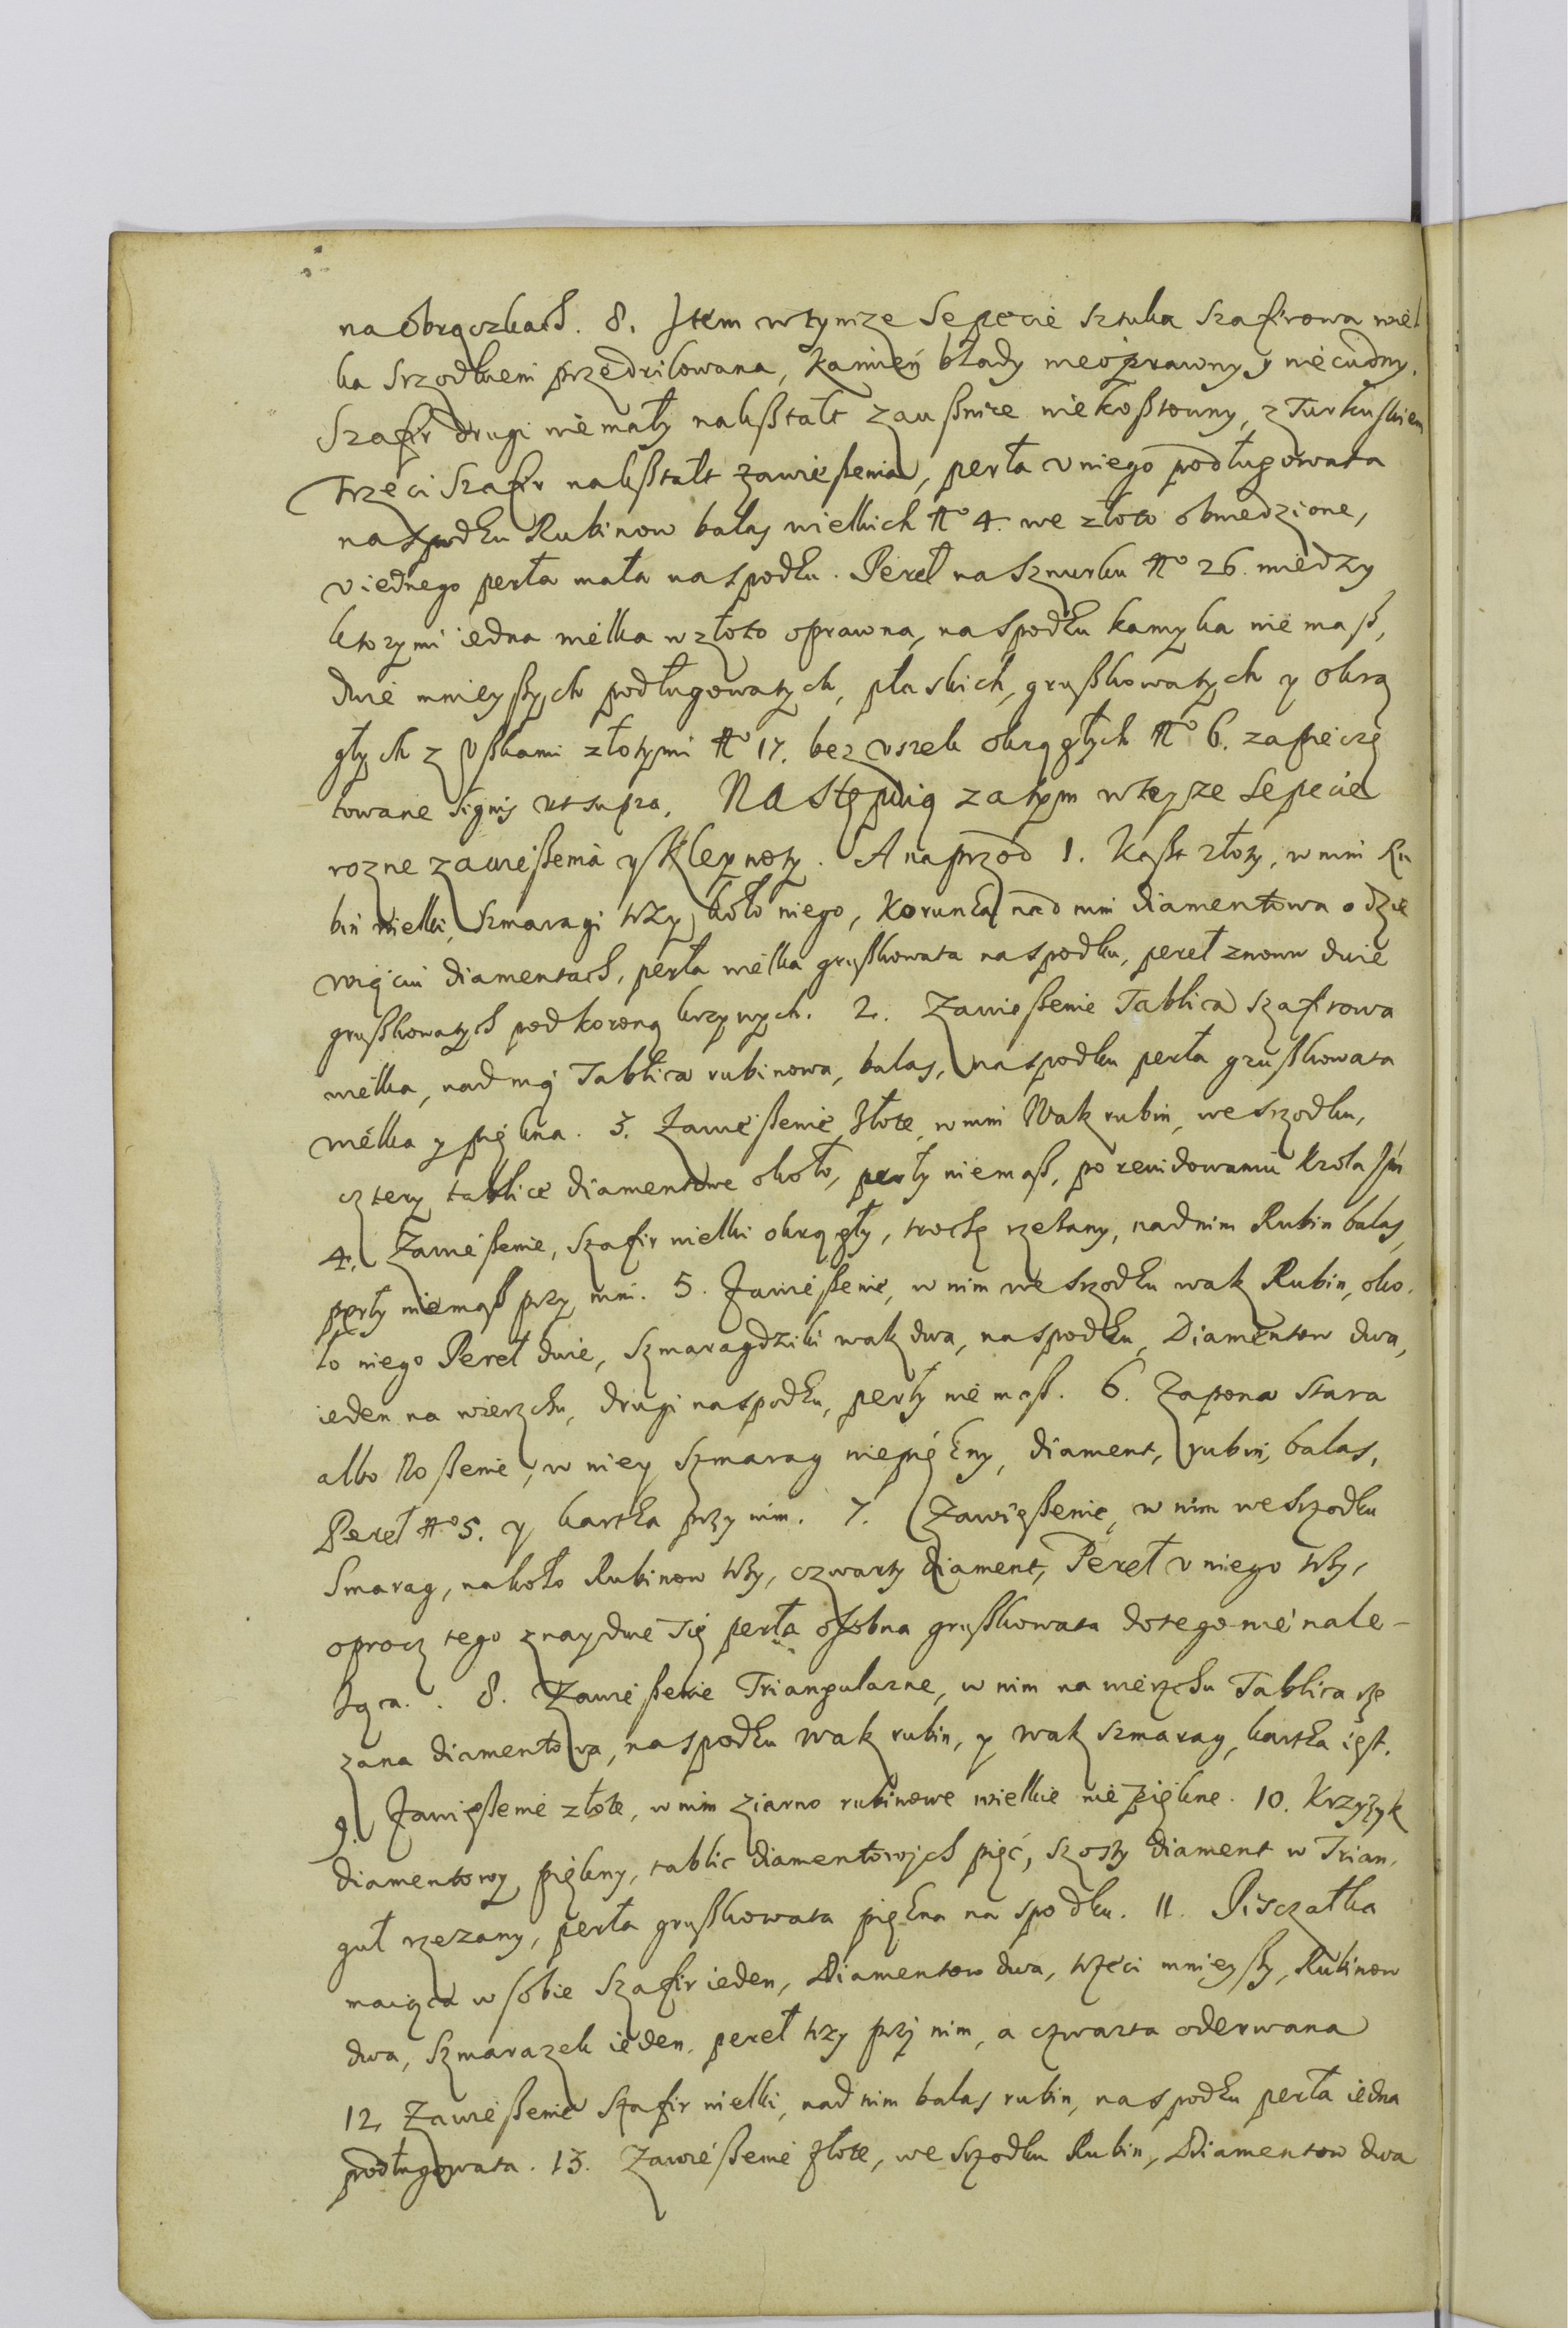 na obrączkach. 8. Item wtymze Sepecie sztuka Szafirowa wiel
ka srzodkiem przedrilowana, Kamień blady nieoprawny y niecudny.
Szafir drugi niemały nakßtałt zaußnice niekoßtowny, z Turkuskiem
Trzeci Szafir nakßtałt zawießenia, perła v niego podługowata
na spodku Rubinow balas wielkich No 4. we złoto obwiedzione,
v iednego perła mała na spodku. Pereł na Sznurku No 26. miedzy
ktorymi iedna wielka w złoto oprawna, na spodku kamyka nie maß,
dwie mnieyßych podługowatych, płaskich, grußkowatych y okrą
głych z vßkami złotymi No 17. bez vszek okrągłych No 6. zapieczę
towane signis vt supra. Następuią zatym wteyze Sepecie
rozne zawießenia y Kleynoty. A naprzod 1. Kaßt złoty, w nim Ru
bin wielki, Szmaragi trzy koło niego, Korunka nad nim diamentowa o dzie
wiąciu diamentach, perła wielka grußkowata na spodku, pereł znowu dwie
grußkowatych pod koroną krzywych. 2. Zawießenie Tablica szafirowa
wielka, nad nią Tablica rubinowa, balas, na spodku perła grußkowata
wielka y piękna. 3. Zawießenie Złote, w nim Wak rubin, we srzodku,
cztery tablice diamentowe około, perły niemaß, po rewidowaniu Krola Jm
4. Zawießenie, Szafir wielki okrągły, trochę rzezany, nad nim Rubin balas,
perły niemaß przy nim. 5. Zawießenie, w nim we srzodku wak Rubin, oko
ło niego Pereł dwie, Szmaragdziki wak dwa, na spodku, Diamentow dwa,
ieden na wierzchu, drugi na spodku, perły nie maß. 6. Zapona stara
albo Noßenie, w niey Szmarag niepiękny, diament, rubin, balas,
Pereł No 5. y kartka przy nim. 7. Zawießenie, w nim we srzodku
Smarag, nakoło Rubinow trzy, czwarty diament, Pereł v niego trzy,
oprocz tego znayduie się perła osobna grußkowata do tego nie nale-
żąca. 8. Zawießenie Triangularne, w nim na wierzchu Tablica rze
zana diamentowa, na spodku wak rubin, y wak szmarag, kartka iest.
9. Zawießenie złote, w nim ziarno rubinowe wielkie nie piękne. 10. Krzyżyk
diamentowy piękny, tablic diamentowych pięć, szosty diament w Trian,
guł rzezany, perła grußkowata piękna na spodku. 11. Pisczałka
maiąca w sobie Szafir ieden, Diamentow dwa, trzeci mnieyßy, Rubinow
dwa, Szmarazek ieden, pereł trzy przy nim, a czwarta oderwana
12. Zawießenie Szafir wielki, nad nim balas rubin, na spodku perła iedna
podługowata. 13. Zawießenie złote, we srzodku Rubin, Diamentow dwa